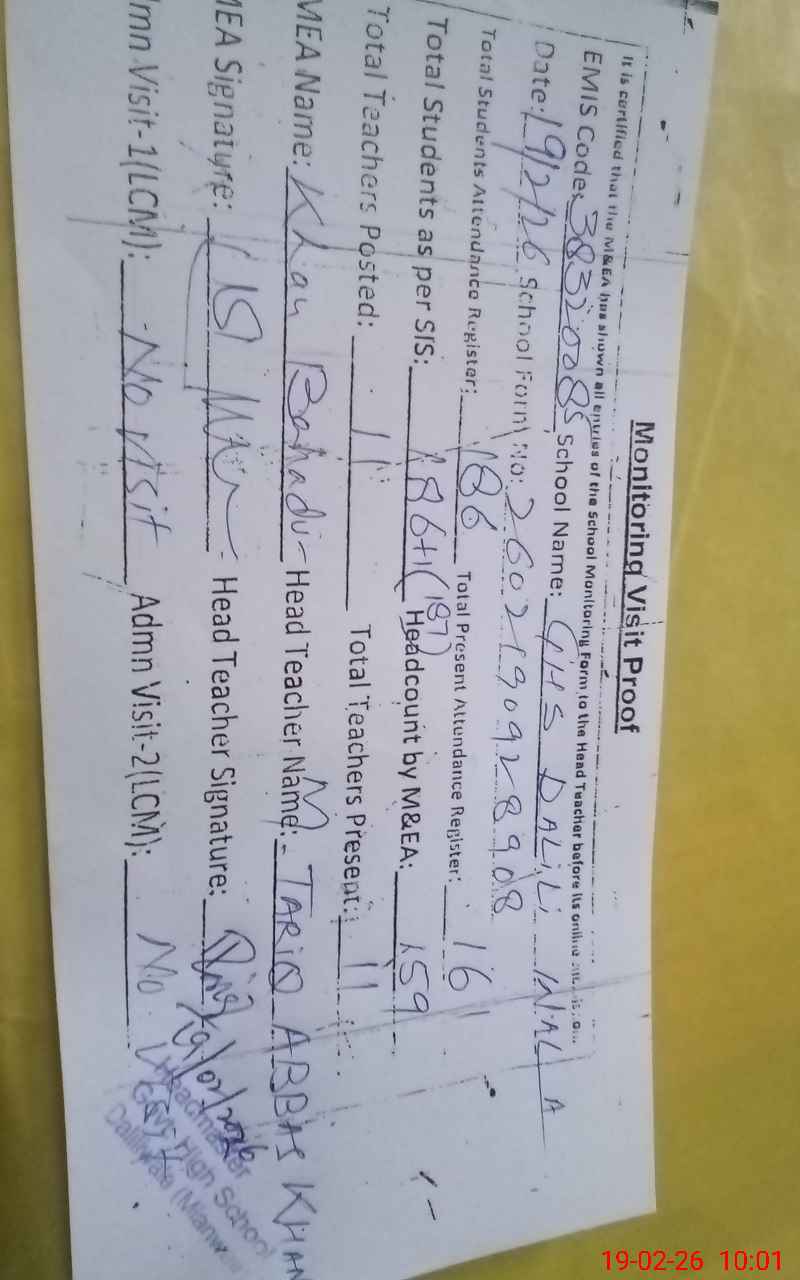 Monitoring Visit Proof
It is certified that the M&EA has shown all entries of the School Monitoring Form to the Head Teacher before its online
EMIS Code: 38320085 School Name: GHS DALILI WALA
Date: 19/2/26 School Form No: 2602190928908
Total Students Attendance Register: 186 Total Present Attendance Register: 16
Total Students as per SIS: 186+1(187) Headcount by M&EA: 159
Total Teachers Posted: 11 Total Teachers Present: 11
MEA Name: Khan Bahadur Head Teacher Name: M TARIQ ABBAS KHAN
MEA Signature: Head Teacher Signature:
19/02/2026
dmn Visit-1(LCM): No visit Admn Visit-2(LCM): No visit
Headmaster
Govt High School
Daliliwala (Mianwali
19-02-26 10:01